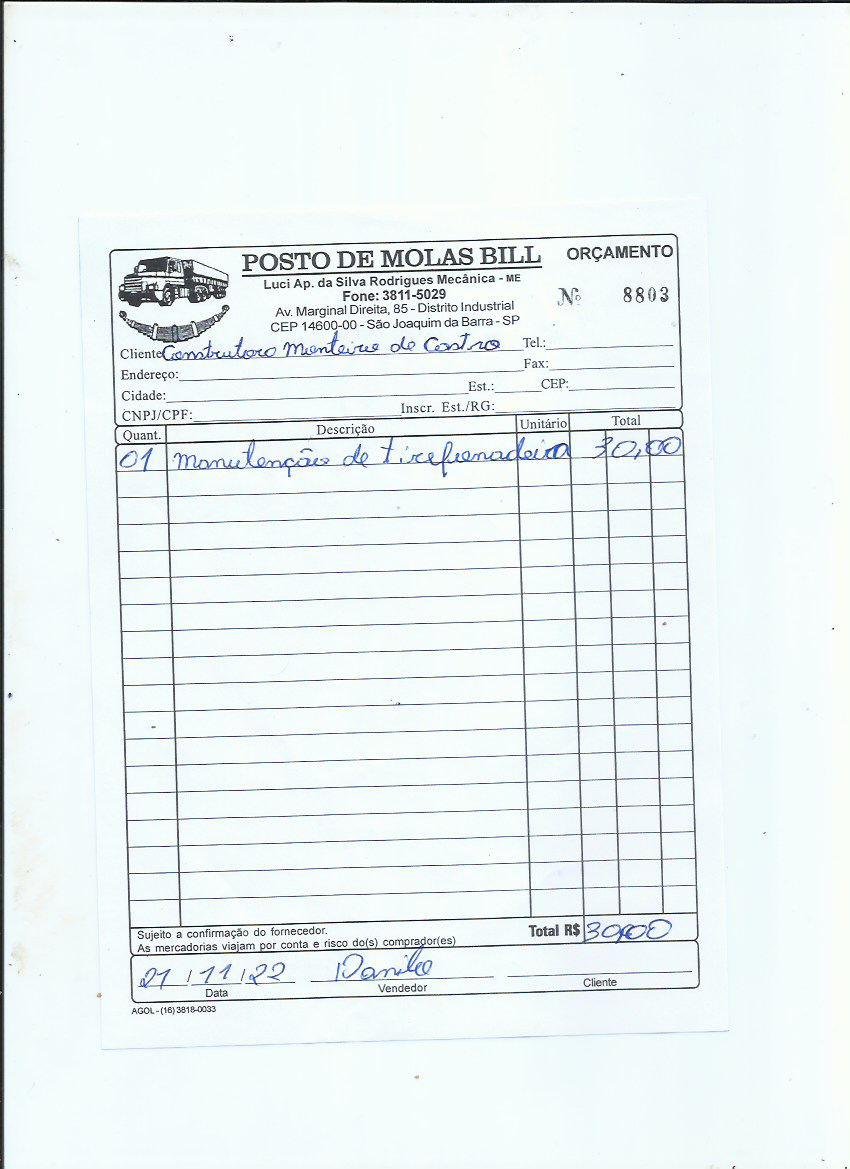 POSTO DE MOLAS BILL
ORÇAMENTO
Luci Ap. da Silva Rodrigues Mecânica - ME
Fone: 3811-5029
Av. Marginal Direita, 85 - Distrito Industrial
CEP 14600-00 - São Joaquim da Barra - SP
Nº 8803
Cliente Construtora Monteiro de Castro Tel.:
Endereço: Fax:
Cidade: Est.: CEP:
CNPJ/CPF: Inscr. Est./RG:
Quant. Descrição Unitário Total
01 manutenção de tirefonadeira 30,00
Sujeito a confirmação do fornecedor.
As mercadorias viajam por conta e risco do(s) comprador(es)
Total R$ 30,00
21/11/22 Danilo
Data Vendedor Cliente
AGOL - (16) 3818-0033